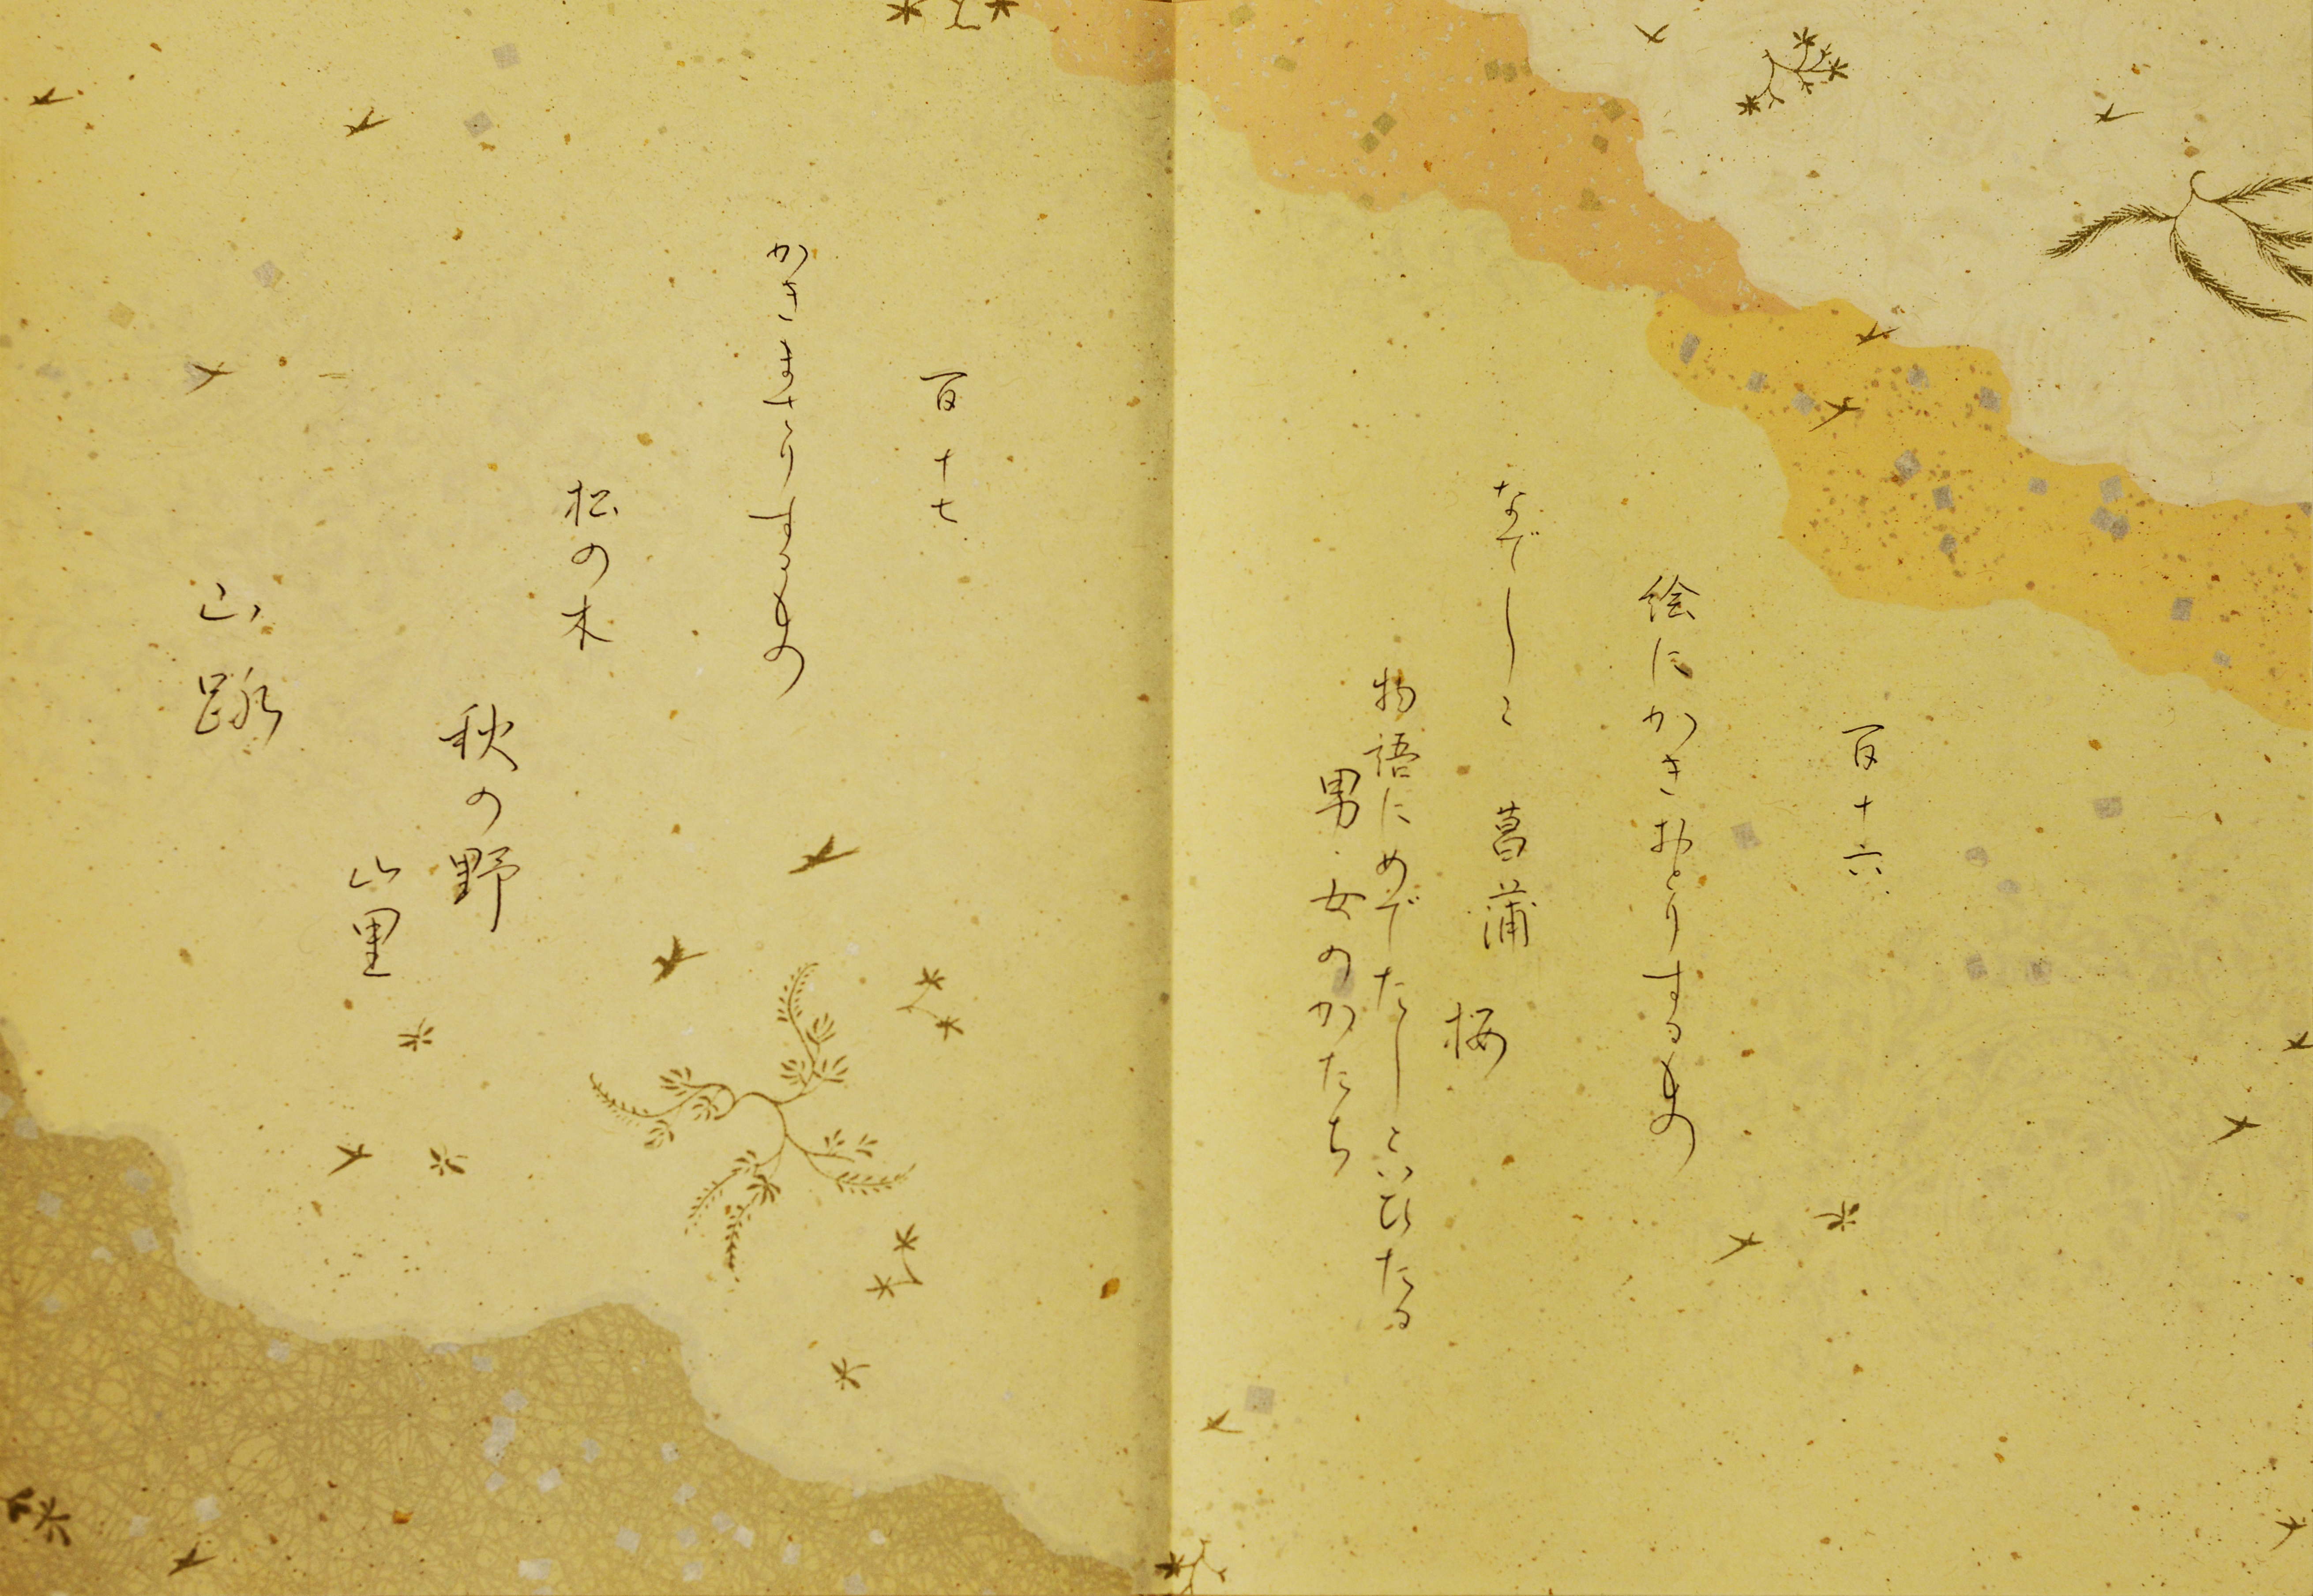 百十六
絵にかきおとりするもの
なでしこ 菖蒲
桜
物語にめでたしといひたる
男・女のかたち
百十七
かきまさりするもの
松の木
秋の野
山里
山路